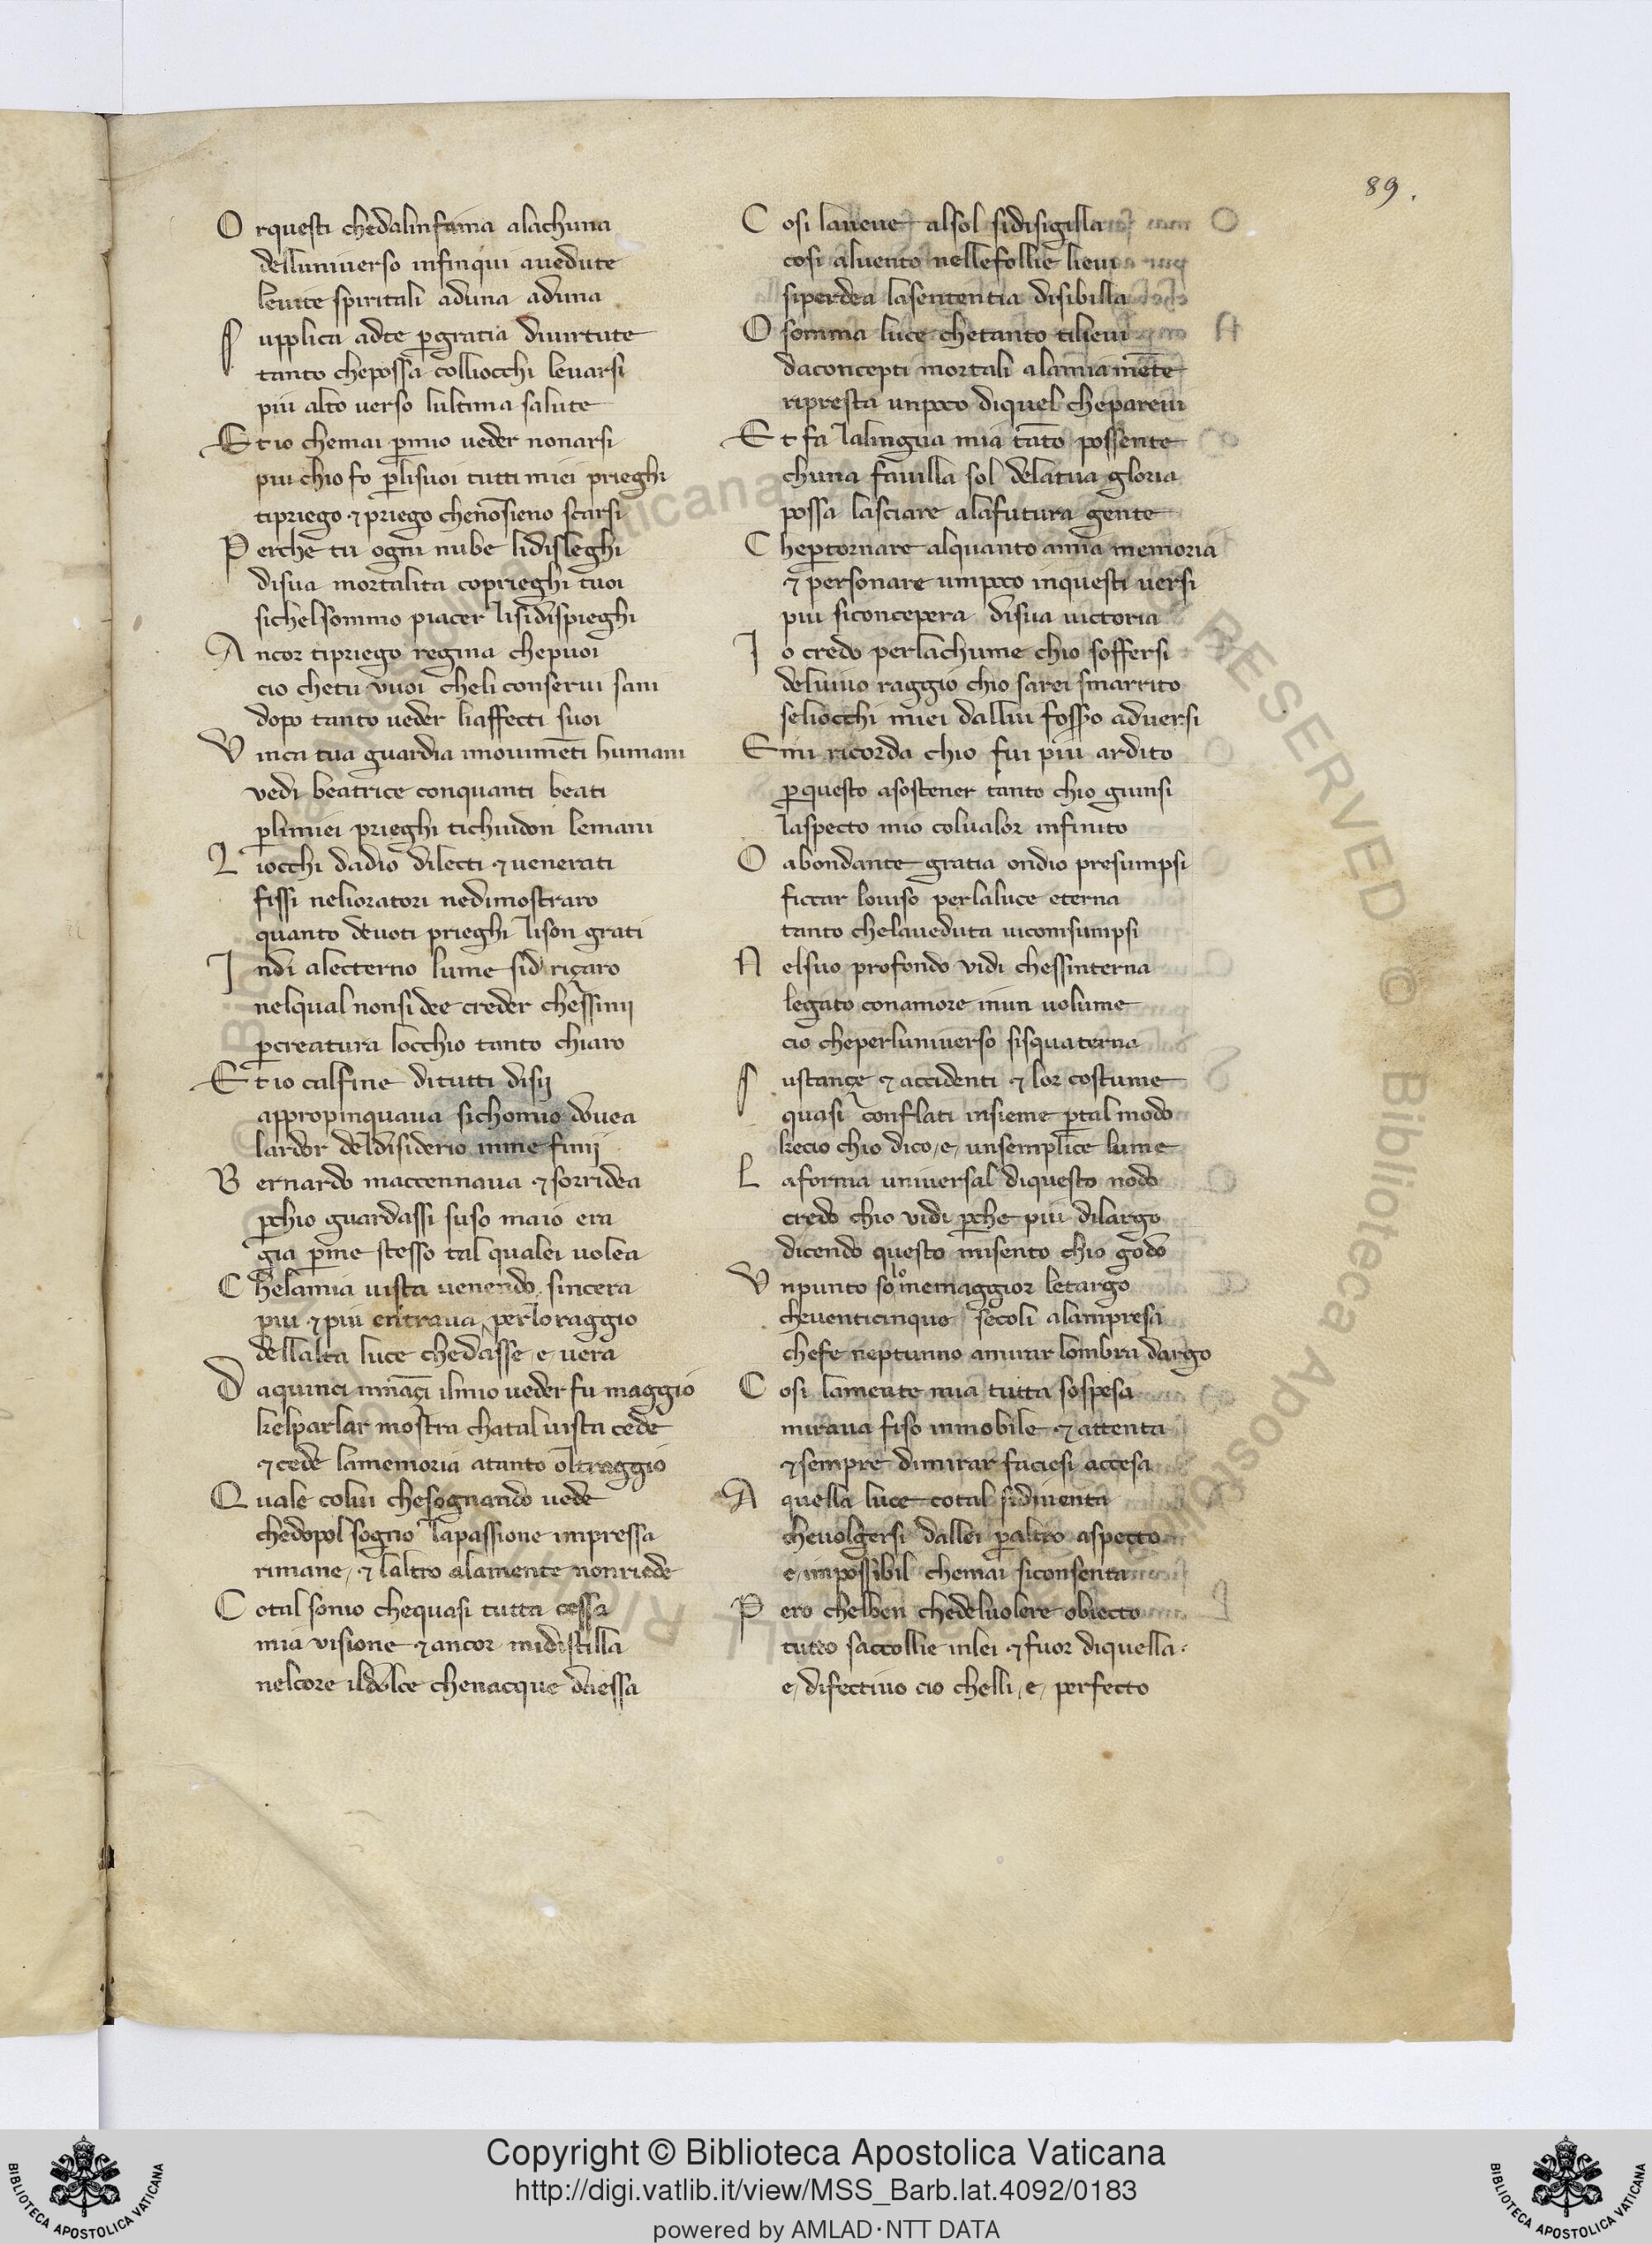 89.
O rquesti chedalinfima alachuna
delluniuerso infinqui auedute
leuite spiritali aduna aduna
S upplica adte ꝑgratia diuirtute
tanto chepossa colliocchi leuarsi
piu alto uerso lultima salute
Et io chemai ꝑmio ueder nonarsi
piu chio fo ꝑlisuoi tutti miei prieghi
tipriego ⁊ priego chenōsieno scarsi
P erche tu ogni nube lidisleghi
disua mortalita coprieghi tuoi
sichelsommo piacer lisidispieghi
A ncor tipriego regina chepuoi
cio chetu vuoi cheli conserui sani
dopo tanto ueder liaffecti suoi
V inca tua guardia imouimēti humani
vedi beatrice conquanti beati
ꝑlimiei prieghi tichiudon lemani
L iocchi dadio dilecti ⁊ uenerati
fissi nelioratori nedimostraro
quanto deuoti prieghi lison grati
I ndi alecterno lume sidriçaro
nelqual nonsi dee creder chessinij
ꝑcreatura locchio tanto chiaro
Et io calfine ditutti disij
appropinquaua sichomio douea
lardor deldisiderio inme finij
B ernardo maccennaua ⁊ sorridea
ꝑchio guardassi suso maio era
gia ꝑme stesso tal qualei uolea
C helamia uista uenendo sincera
piu ⁊ piu entraua perloraggio
dellalta luce chedasse e uera
D aquinci innāçi ilmio ueder fu maggio
kelparlar mostra chatal uista cede
⁊ cede lamemoria atanto oltraggio
Q uale colui chesognando uede
chedopol sogno lapassione impressa
rimane, ⁊ laltro alamente nonriede
C otal sonio chequasi tutta cessa
mia visione ⁊ ancor midistilla
nelcore ildolce chenacque daessa
C osi laneue alsol sidisigilla
cosi aluento nellefollie lieui
siperdea lasententia disibilla
O somma luce chetanto tilieui
daconcepti mortali alamia mēte
ripresta unpoco diquel chepareui
Et fa lalingua mia tāto possente
chuna fauilla sol delatua gloria
possa lasciare alafutura gente
C hepertornare alquanto amia memoria
⁊ personare umpoco inquesti uersi
piu siconcepera disua uictoria
I o credo perlachume chio soffersi
deluiuo raggio chio sarei smarrito
seliocchi miei dallui fosso aduersi
E mi ricorda chio fui piu ardito
ꝑquesto asostener tanto chio giunsi
laspecto mio colualor infinito
O abondante gratia ondio presumpsi
ficcar louiso perlaluce eterna
tanto chelaueduta uiconsumpsi
N elsuo profondo vidi chessinterna
legato conamore inun uolume
cio cheperluniuerso sisquaterna
S ustançe ⁊ accidenti ⁊ lor costume
quasi conflati insieme ꝑtal modo
kecio chio dico, e, unsemplice lume
L aforma uniuersal diquesto nodo
credo chio vidi ꝑche piu dilargo
dicendo questo misento chio godo
V npunto solo memaggior letargo
cheuenticinque secoli alampresa
chefe neptunno amirar lombra dargo
C osi lamente mia tutta sospesa
miraua fiso inmobile ⁊ attenta
⁊ sempre dimirar faciesi accesa
A quella luce cotal sidiuenta
cheuolgersi dallei ꝑaltro aspecto
e, impossibil chemai siconsenta
P ero chelben chedeluolere obiecto
tutto saccollie inlei ⁊ fuor diquella
e, difectiuo cio chelli, e, perfecto
Copyright © Biblioteca Apostolica Vaticana
http://digi.vatlib.it/view/MSS_Barb.lat.4092/0183
powered by AMLAD·NTT DATA
BIBLIOTECA APOSTOLICA VATICANA
BIBLIOTECA APOSTOLICA VATICANA